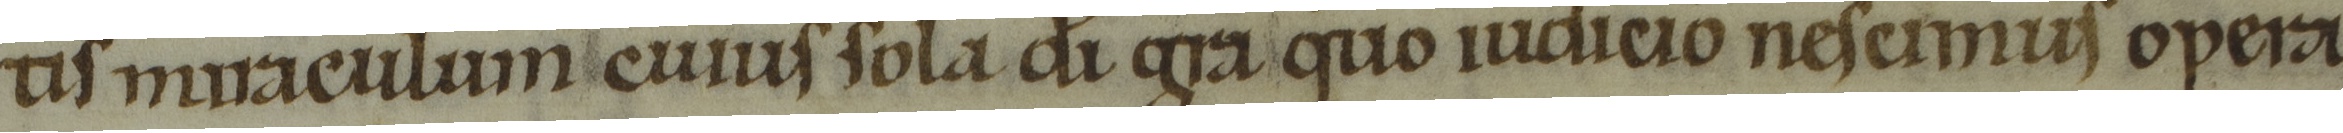 tis miraculum cuius sola di gra quo iudicio nescimus opera